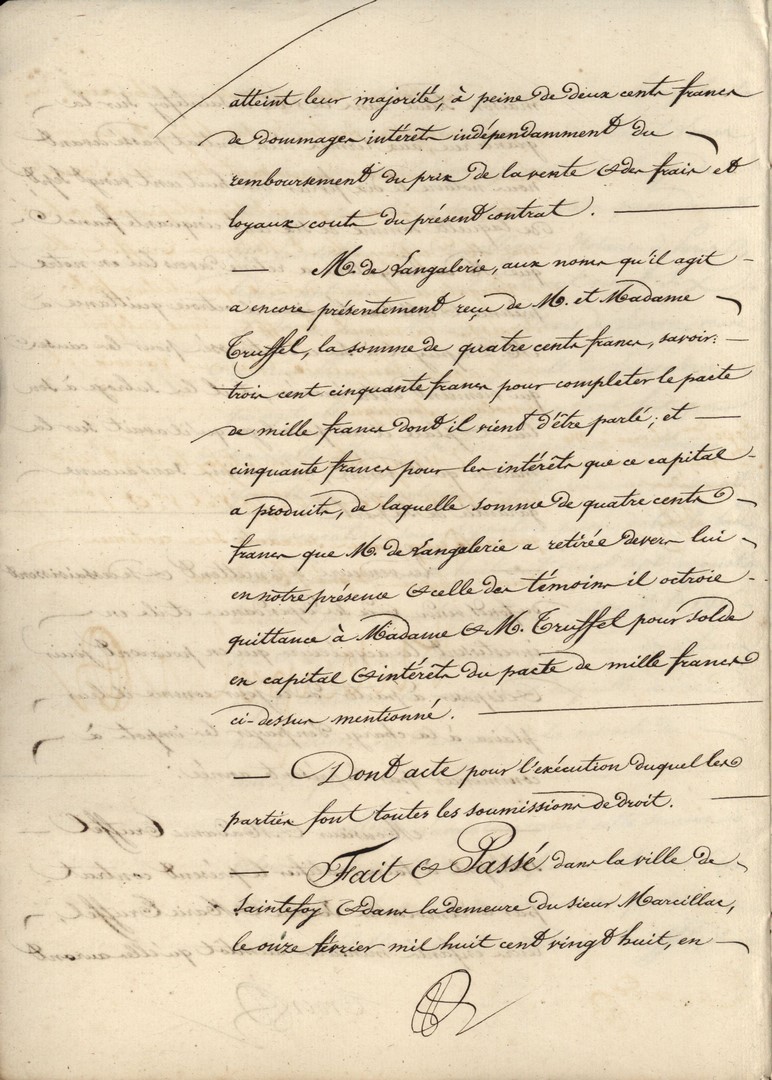 atteint leur majorité, à peine de deux cents francs
de dommages intérêts indépendamment du
remboursement du prix de la vente & des frais et
loyaux couts du présent contrat.
— M. de Langalerie, aux noms qu'il agit
a encore présentement reçu de M. et Madame
Truffel, la somme de quatre cents francs, savoir:
trois cent cinquante francs pour completer le pacte
de mille francs dont il vient d'être parlé; et
cinquante francs pour les intérêts que ce capital
a produits, de laquelle somme de quatre cents
francs que M. de Langalerie a retirée devers lui
en notre présence & celle des témoins il octroie
quittance à Madame & M. Truffel pour solde
en capital & intérêts du pacte de mille francs
ci-dessus mentionné.
— Dont acte pour l'exécution duquel les
parties font toutes les soumissions de droit.
— Fait & Passé dans la ville de
saintefoy & dans la demeure du sieur Marcillac,
le onze février mil huit cent vingt huit, en